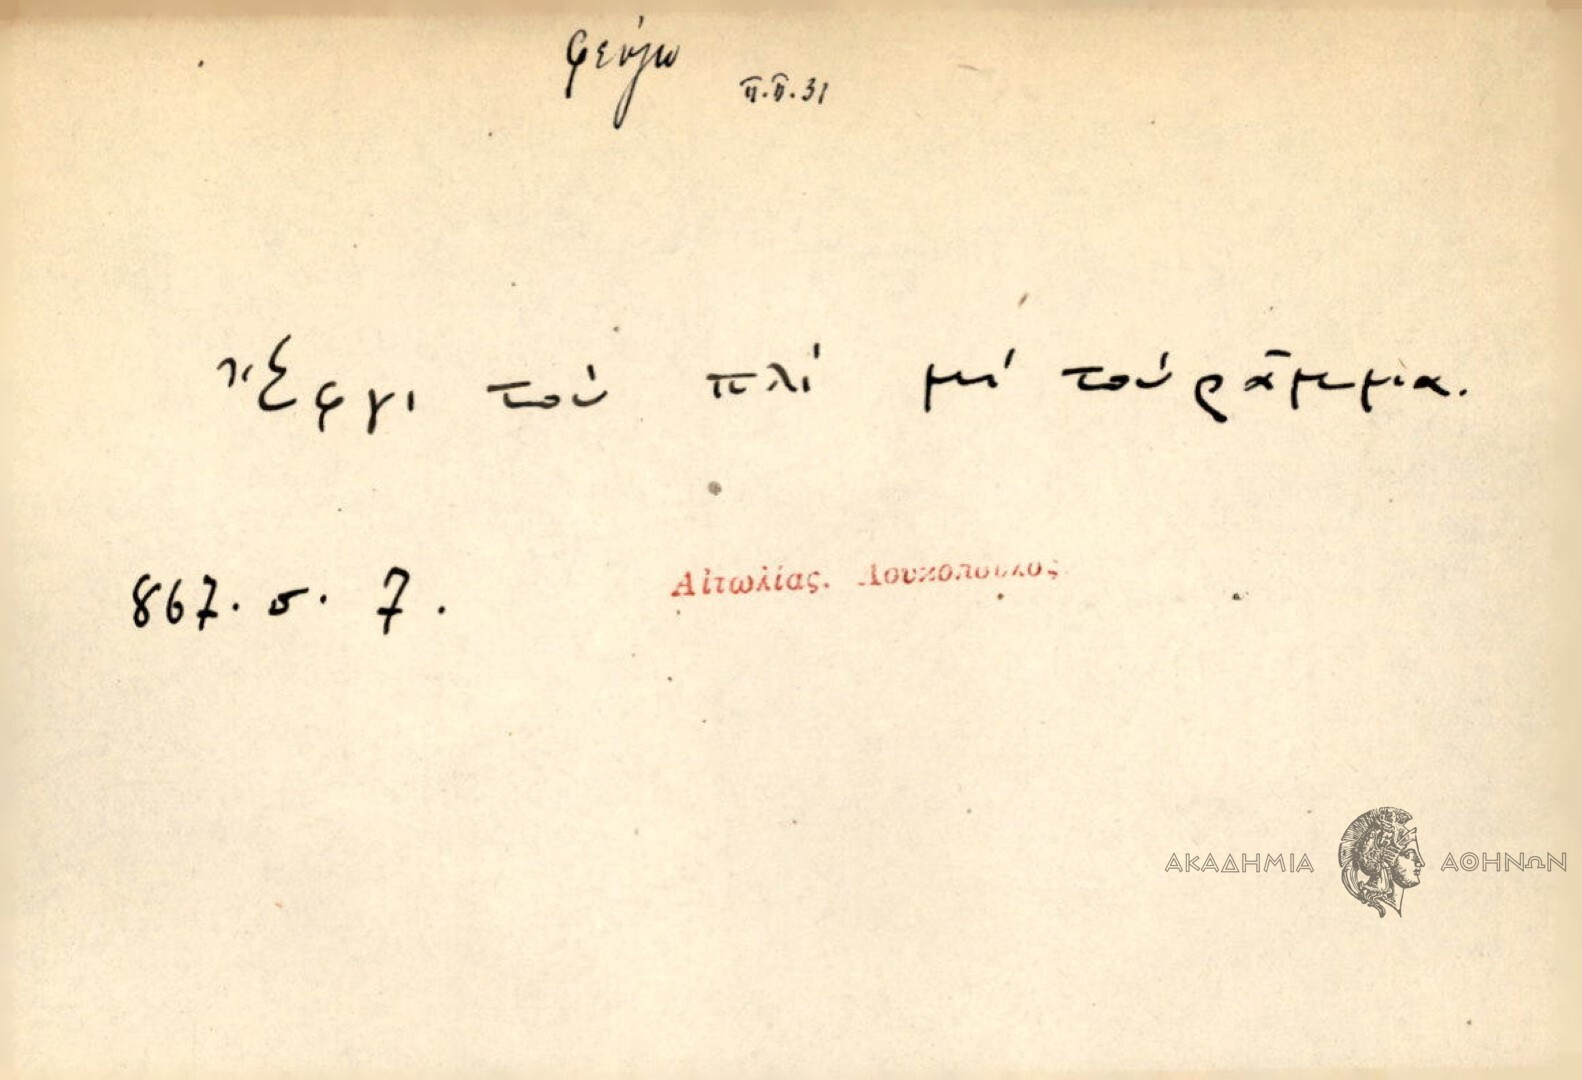 φεύγω
π.π. 31
Ἔφγι τοὺ πλὶ μὶ τοὺ ράμμα.
867. σ. 7.
Αἰτωλίας. Λουκοπουλος
ΑΚΑΔΗΜΙΑ ΑΘΗΝΩΝ